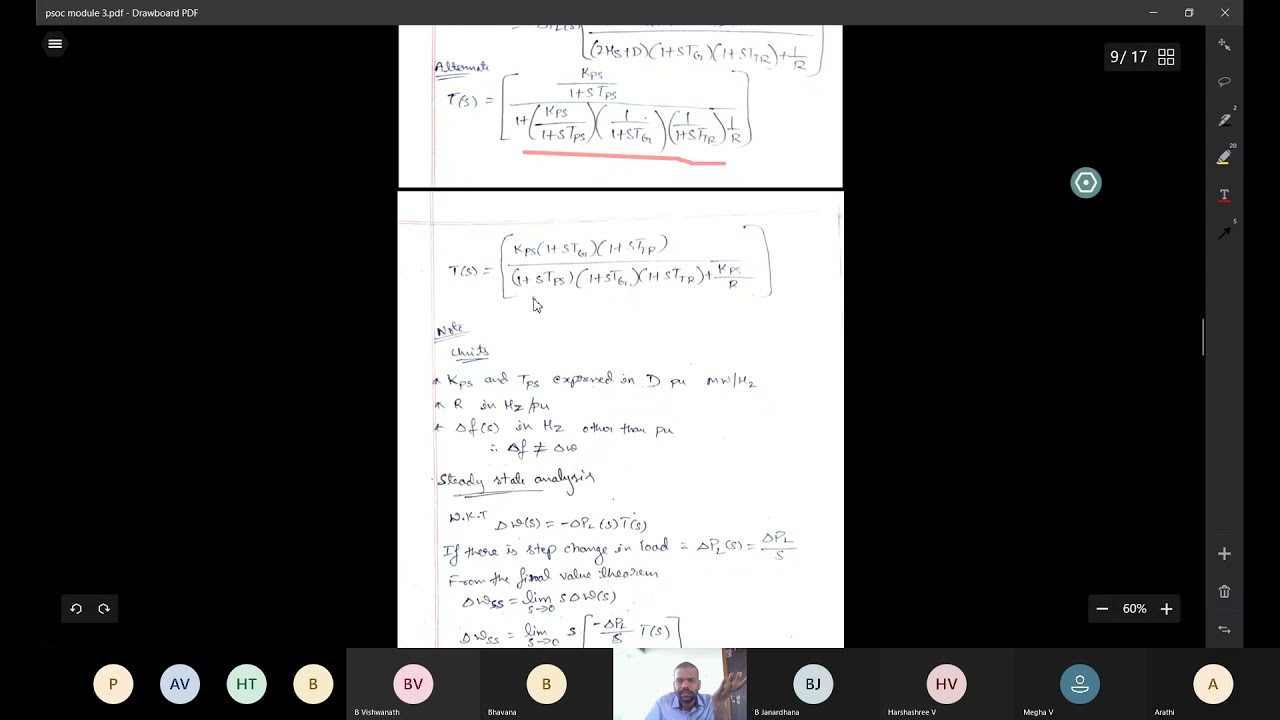 psoc module 3.pdf - Drawboard PDF
9 / 17
(2Hs+D)(1+STG)(1+STTR)+1/R
Alternate
T(s) = [ KPS/(1+STPS) / 1+(KPS/(1+STPS))(1/(1+STG))(1/(1+STTR))1/R ]
20
2
5
T(s) = [ KPS(1+STG)(1+STTP) / (1+STPS)(1+STG)(1+STTR)+KPS/R ]
Note
Units
* KPS and TPS expressed in D pu MW/HZ
* R in HZ/pu
* Δf(s) in HZ other than pu
∴ Δf ≠ Δω
Steady state analysis
W.K.T Δω(s) = -ΔPL(s)T(s)
If there is step change in load ∴ ΔPL(s) = ΔPL/S
From the final value theorem
Δωss = lim s→0 sΔω(s)
Δωss = lim s→0 s[-ΔPL/s T(s)]
60%
P
AV
HT
B
BV
B
BJ
HV
A
B Vishwanath
Bhavana
B Janardhana
Harshashree V
Megha V
Arathi